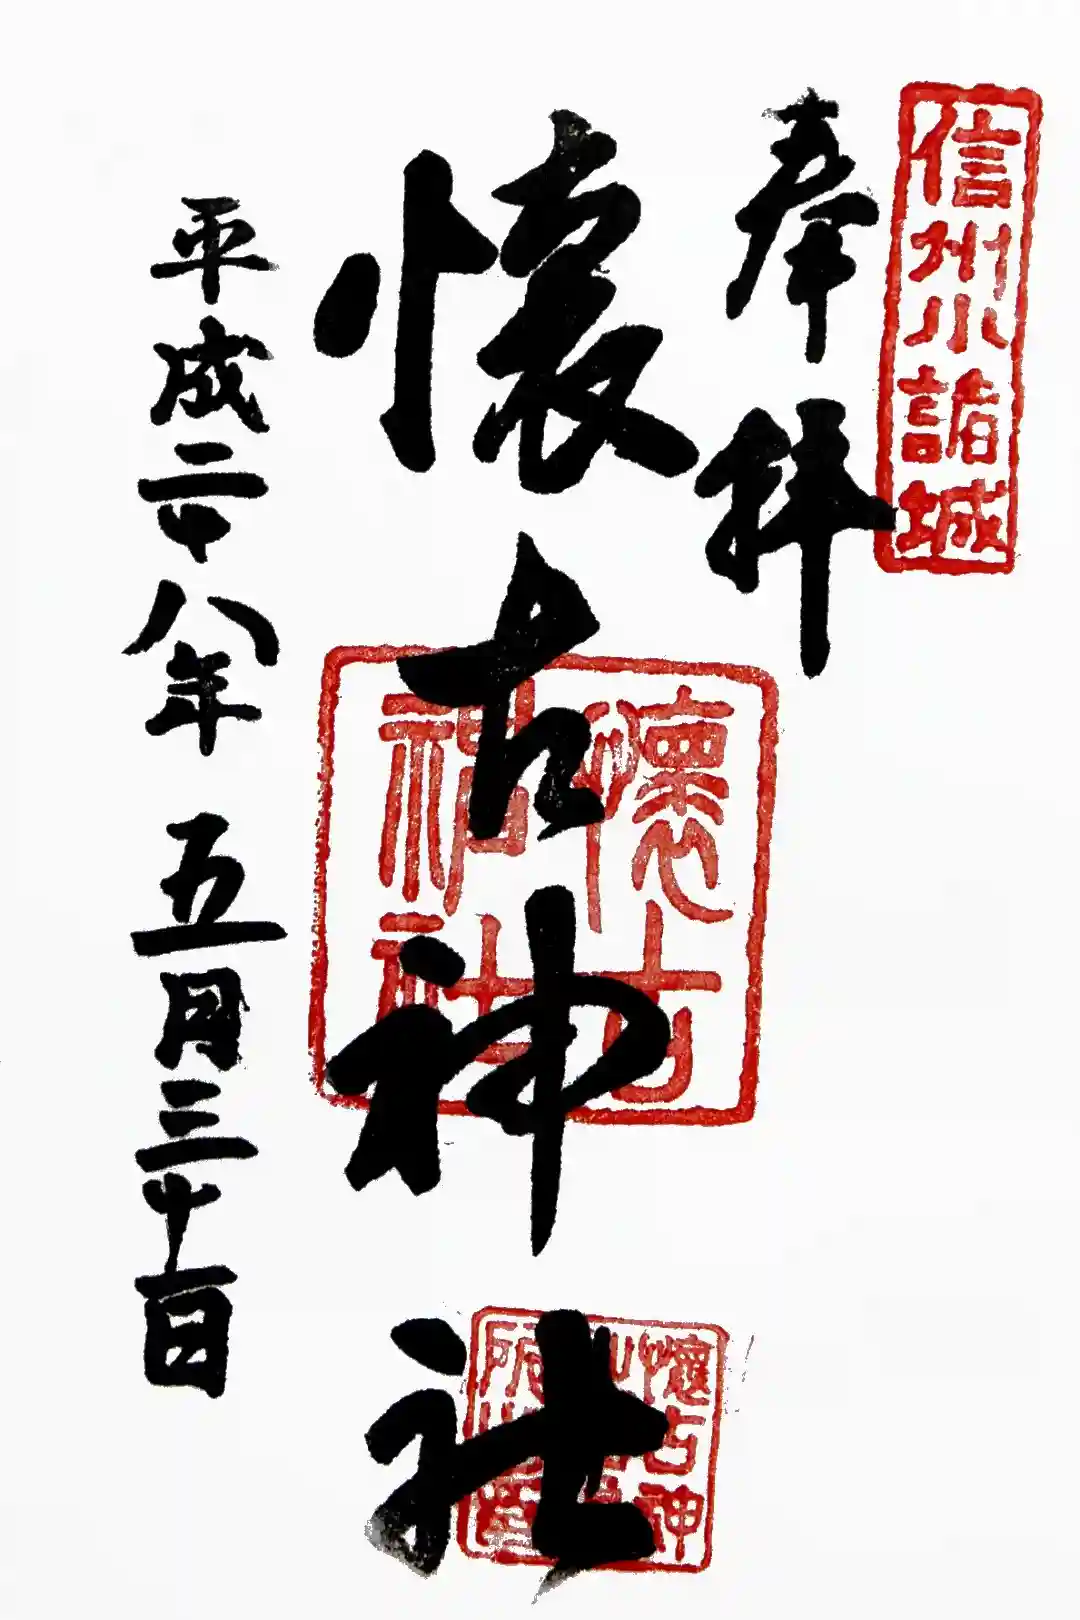 信州小諸城
奉拝
懐古神社
懷古
神社
懷古神
平成二十八年 五月三十日